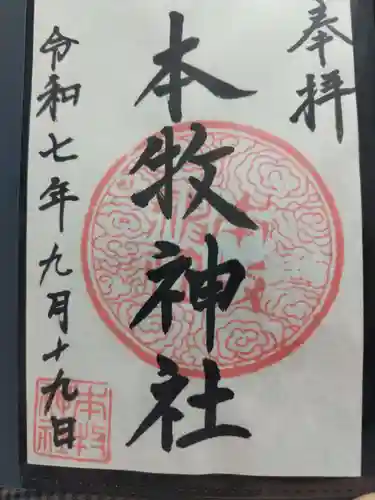 奉拝
本牧神社
令和七年九月十九日
本牧
神社